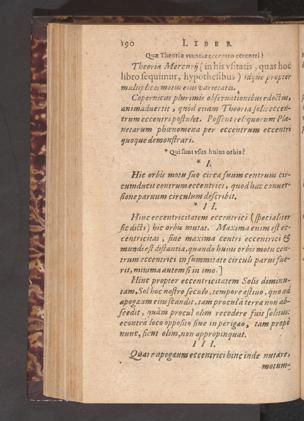 190 LIBER
Quæ Theoriæ eccentro eccentri?
Theoria Mercurij (in his vsitatis, quas hoc
libro sequimur, hypothesibus) idque propter
multiplices motus eius varietates.
Copernicus plurimis observationibus edoctus,
animadvertit, quòd etiam Theoria solis eccen-
trum eccentri postulet. Possent reliquorum Pla-
netarum phænomena per eccentrum eccentri
quoque demonstrari.
* Qui sunt vsus huius orbis?
* I.
Hic orbis motu suo circa suum centrum cir-
cumducit centrum eccentri, quod hac conver-
sione parvum circulum describit.
* II.
Hinc eccentricitatem eccentri (specialiter
sic dicti) hic orbis mutat. Maxima enim est ec-
centricitas, sive maxima centri eccentrici &
mundi est distantia, quando huius orbis motu cen-
trum eccentri in summitate circuli parvi fue-
rit, minima autem si in imo.]
Hinc propter eccentricitatem Solis diminu-
tam, Sol hoc nostro seculo, tempore æstivo, quo ad
apogæum eius scandit, tam procul à terra non ab-
scedit, quàm procul olim recedere fuit solitus:
econtra loco opposito sive in perigæo, tam propè
nunc, sicut olim, non appropinquat.
III.
Quare apogæum eccentri hinc inde nutare,
motum-